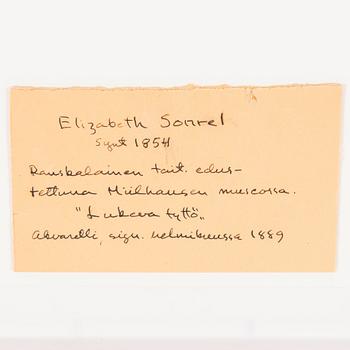 Elizabeth Sonrel
Synt 1854
Ranskalainen tait. edus-
tettuna Mülhausen museossa.
"Lukeva tyttö"
Akvarelli, sign. helmikuussa 1889